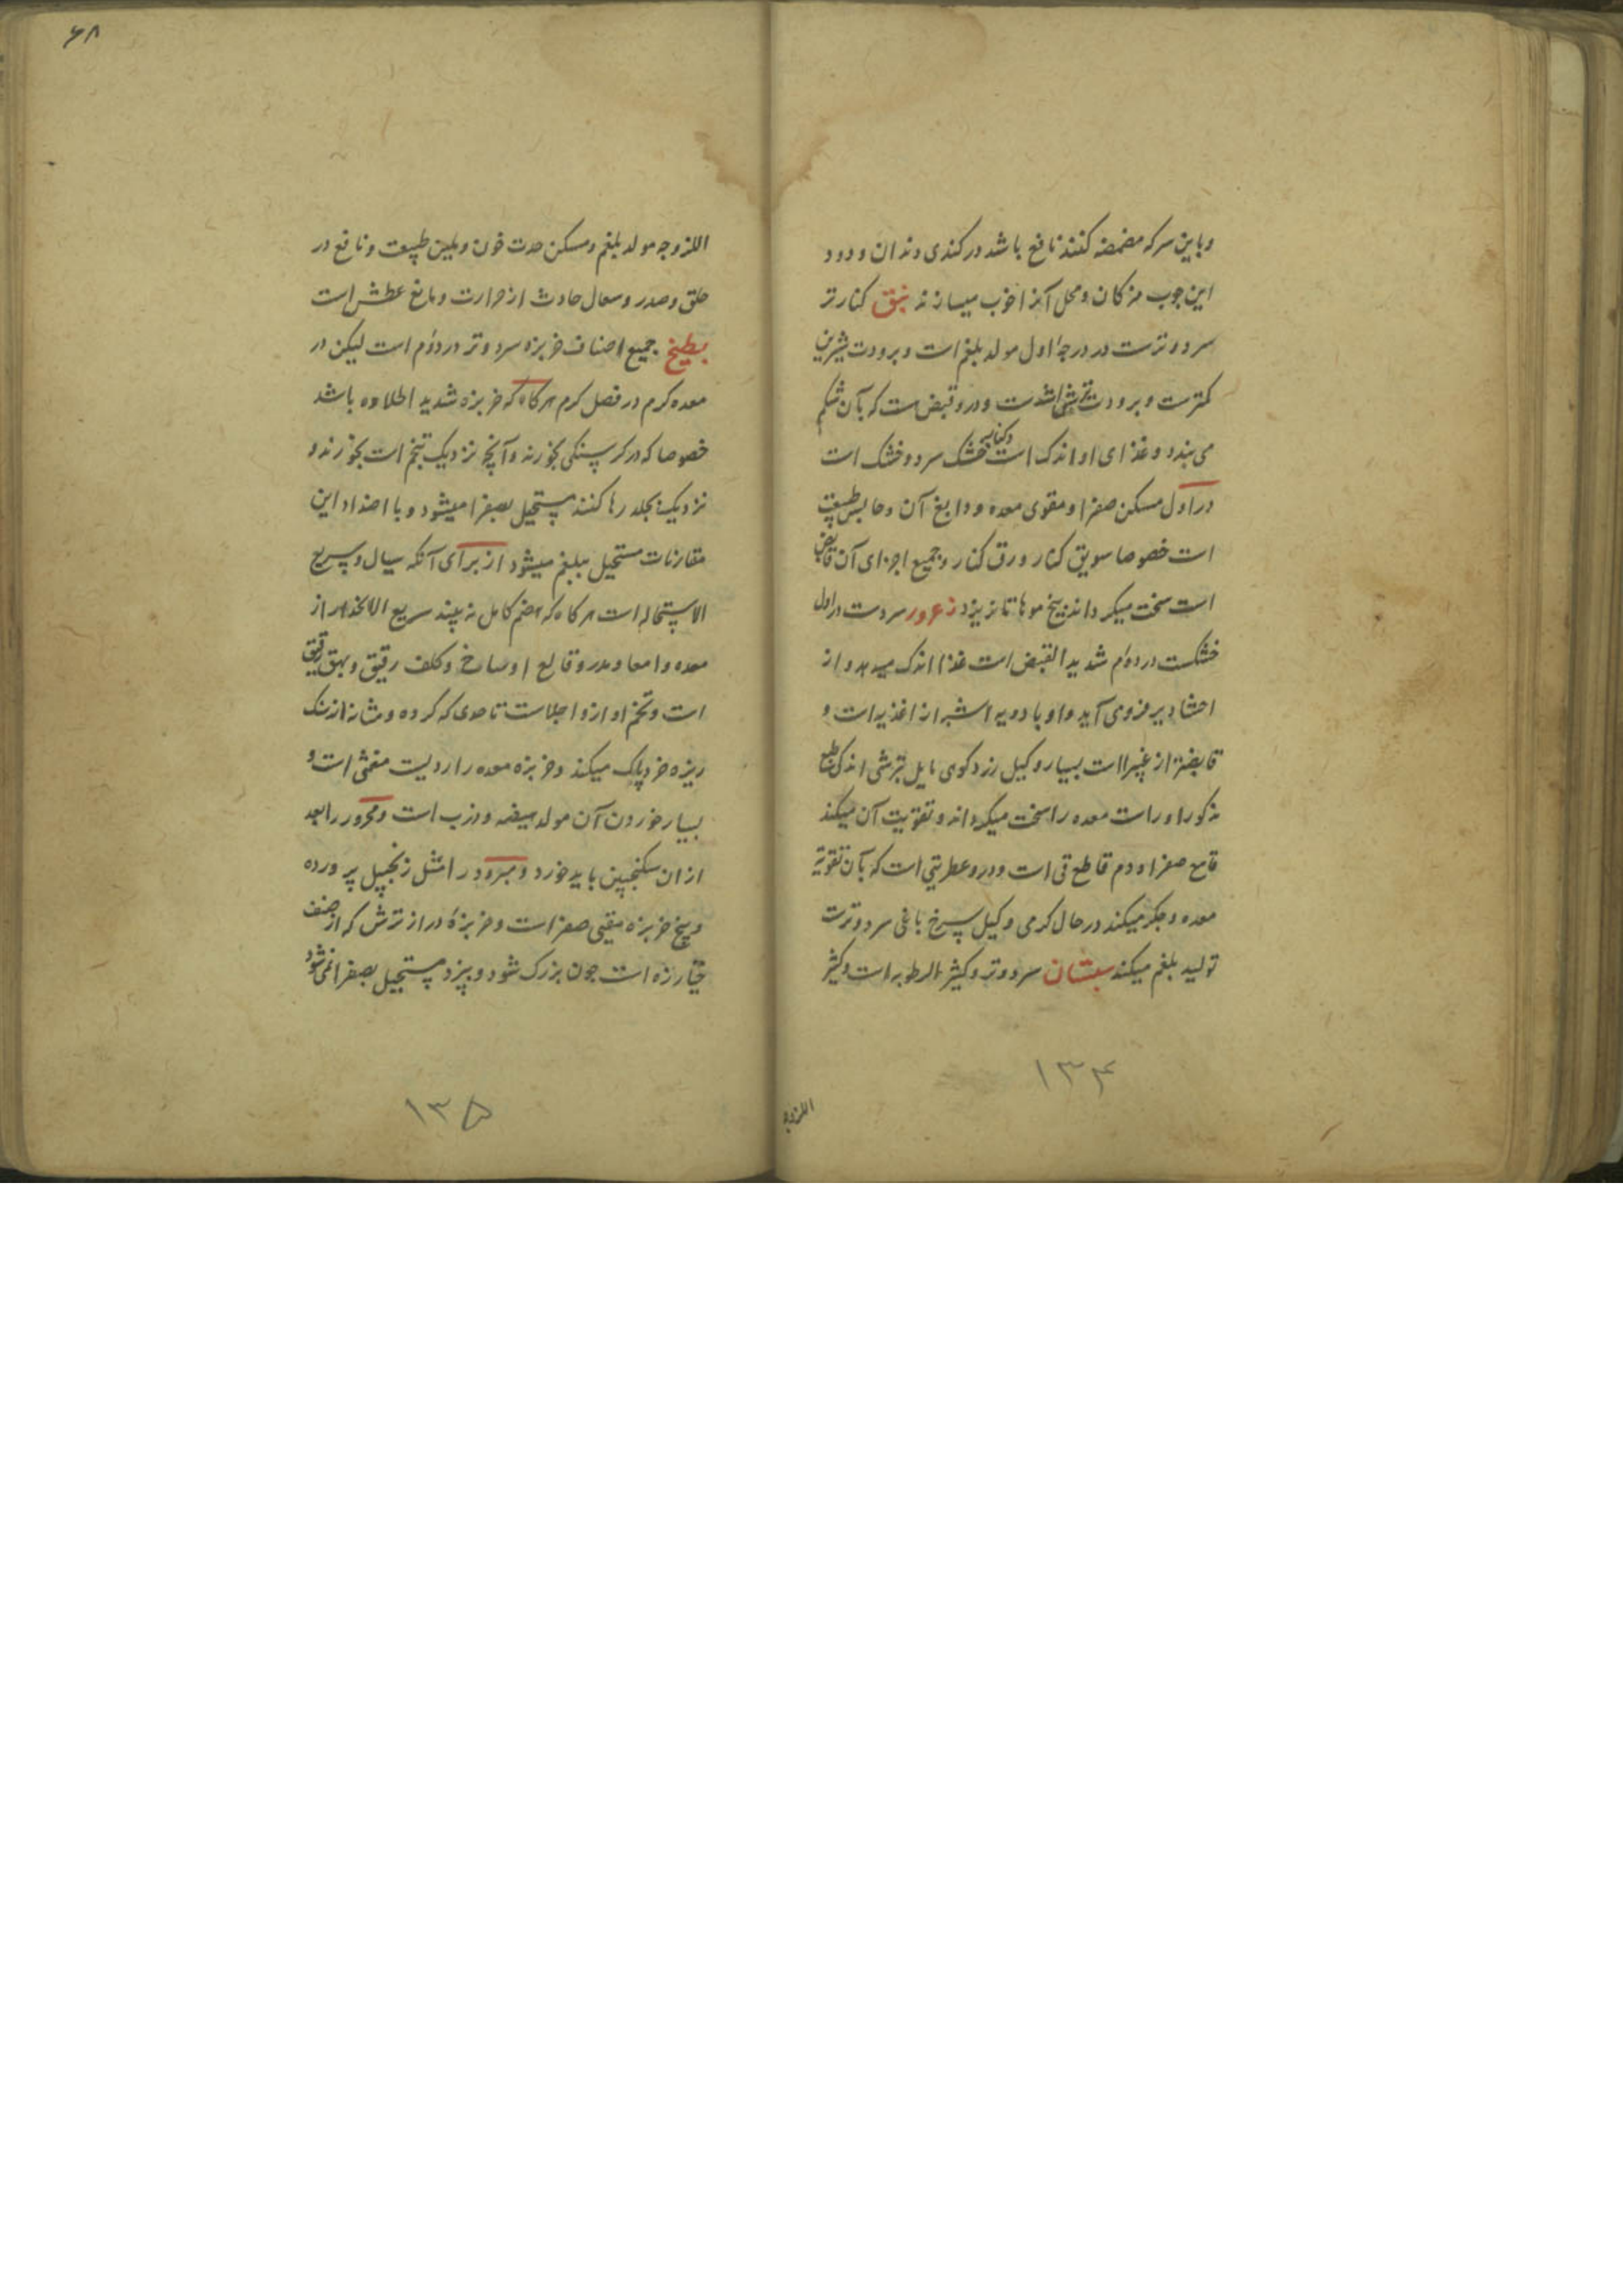 و باین سرکه مضمضه کنند نافع باشد در کندی دندان و دود
این چوب مژکان و محل آنرا خوب میسازند نبق کنار تر
سرد و ترست در درجهٔ اول مولد بلغم است و برودت شیرین
کمترست و برودت ترشی اشدست و درو قبض ست که بآن شکم
می بندد و غذای او اندک است و کنار خشک سرد و خشک است
در اول مسکن صفرا و مقوی معده و دابغ آن و حابس طبیعت
است خصوصا سویق کنار و ورق کنار و جمیع اجزای آن قابض
است سخت میکرداند بیخ موها تا نریزد زعرور سردست در اول
خشکست در دوم شدید القبض است غذا اندک میدهد و از
احشا دیر فرومی آید و او بادویه اشبه از اغذیه است و
قابضتر از غبیرا است بسیار و کیل زرد کوی مایل بترشی اندک طبع
مذکور اوراست معده را سخت میکرداند و تقویت آن میکند
قامع صفرا و دم قاطع قی است و درو عطریتی است که بآن تقویة
معده و جکر میکند در حال کرمی و کیل سرخ باغی سرد و ترست
تولید بلغم میکند سبستان سرد و تر و کثیر الرطوبه است و کثیر
۱۳۴
اللزوجه
۶۸
اللزوجه مولد بلغم و مسکن حدت خون و ملین طبیعت و نافع در
حلق و صدر و سعال حادث از حرارت و مانع عطش است
بطیخ جمیع اصناف خربزه سرد و تر در دوم است لیکن در
معده کرم در فصل کرم هرکاه که خربزه شدید الحلاوه باشد
خصوصا که در کرسنکی بخورند و آنچه نزدیک تخم است بخورند و
نزدیک بجلد رها کنند مستحیل بصفرا میشود و با اضداد این
مقارنات مستحیل ببلغم میشود از برای آنکه سیال و سریع
الاستحاله است هرکاه که هضم کامل نه بیند سریع الانحدار از
معده و امعا و مدر و قالع اوساخ و کلف رقیق و بهق رقیق
است و تخم او ازو اجلاست تا حدی که کرده و مثانه از سنک
ریزه خرد پاک میکند و خربزه معده را ردیست مغثی است و
بسیار خوردن آن مولد هیضه و ذرب است و محرور را بعد
از ان سکنجبین باید خورد و مبرود را مثل زنجبیل پرورده
و بیخ خربزه مقیی صفراست و خربزهٔ دراز ترش که از صنف
خیارزه است چون بزرک شود و بپزد مستحیل بصفرا نمی شود
۱۳۵